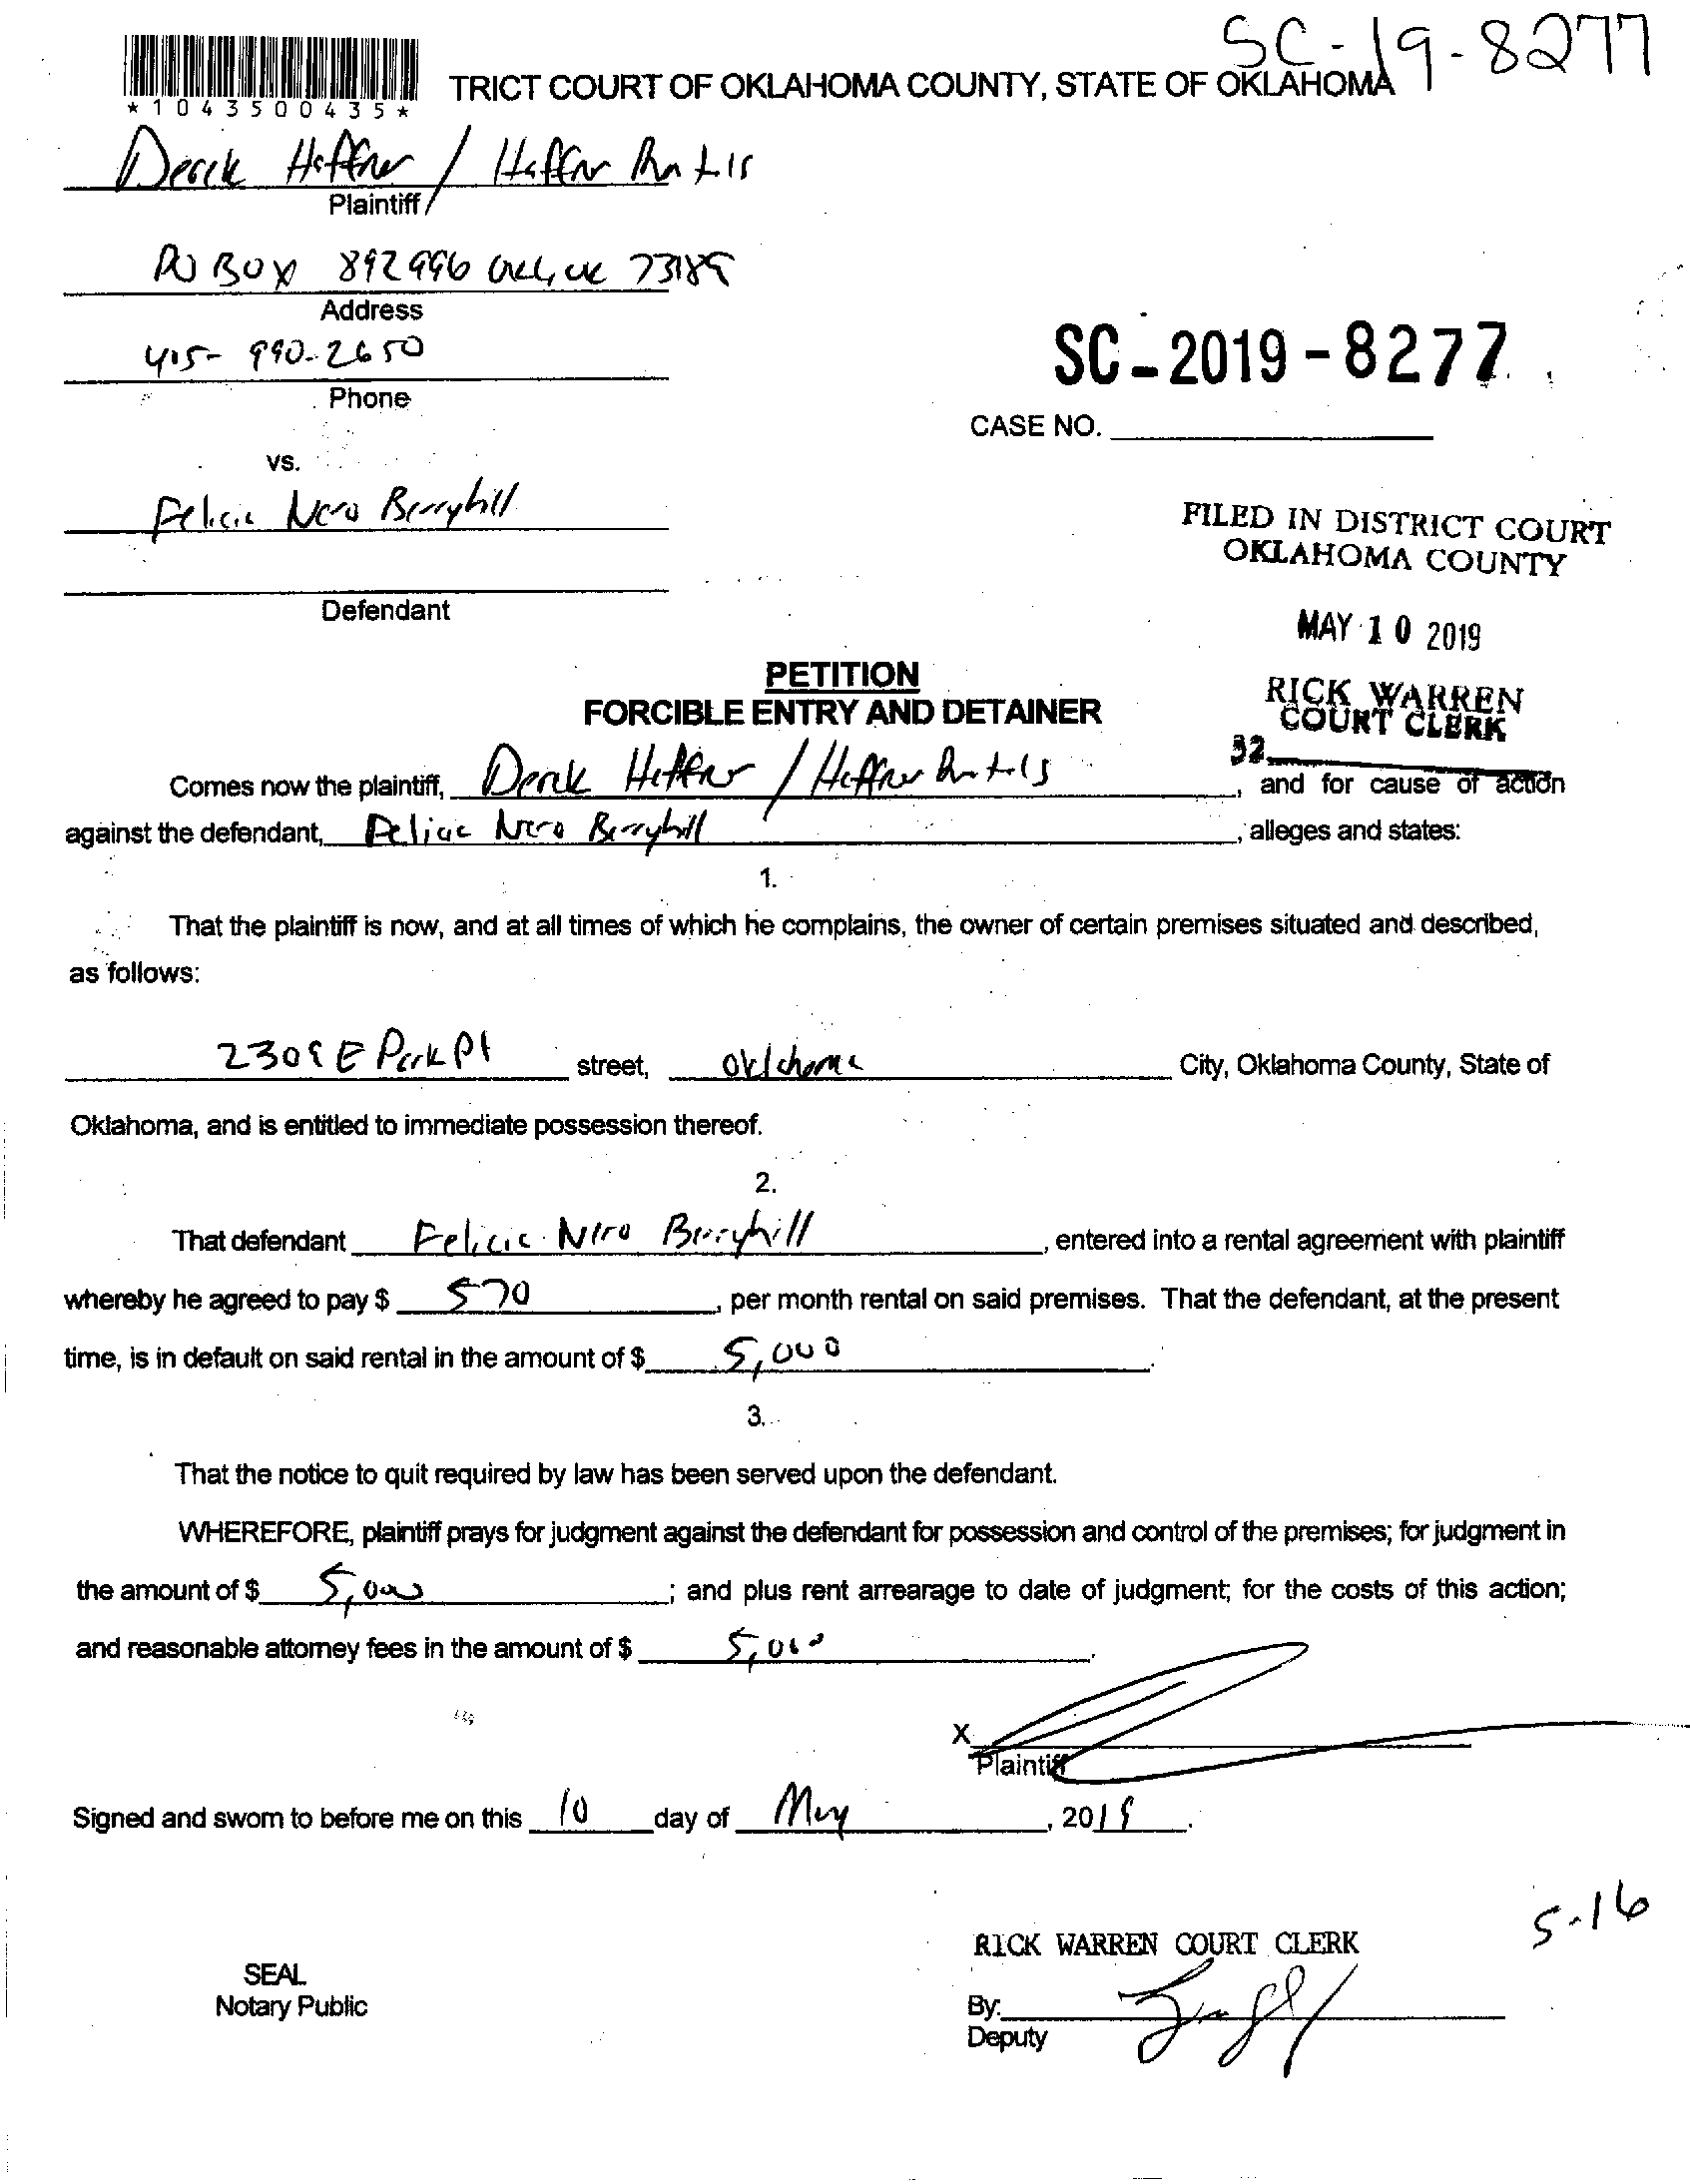 SC-19-8277
*1043500435*
TRICT COURT OF OKLAHOMA COUNTY, STATE OF OKLAHOMA
Derek Heffner / Heffner Rentals
Plaintiff
PO BOX 892996 OKC, OK 73189
Address
405-990-2650
Phone
SC-2019-8277
CASE NO.
vs.
Felicia Nero Berryhill
Defendant
FILED IN DISTRICT COURT
OKLAHOMA COUNTY
MAY 10 2019
RICK WARREN
COURT CLERK
32
PETITION
FORCIBLE ENTRY AND DETAINER
Comes now the plaintiff, Derek Heffner / Heffner Rentals, and for cause of action
against the defendant, Felicia Nero Berryhill, alleges and states:
1.
That the plaintiff is now, and at all times of which he complains, the owner of certain premises situated and described,
as follows:
2309 E Park Pl street, Oklahoma City, Oklahoma County, State of
Oklahoma, and is entitled to immediate possession thereof.
2.
That defendant Felicia Nero Berryhill, entered into a rental agreement with plaintiff
whereby he agreed to pay $ 570, per month rental on said premises. That the defendant, at the present
time, is in default on said rental in the amount of $ 5,000.
3.
That the notice to quit required by law has been served upon the defendant.
WHEREFORE, plaintiff prays for judgment against the defendant for possession and control of the premises; for judgment in
the amount of $ 5,000; and plus rent arrearage to date of judgment; for the costs of this action;
and reasonable attorney fees in the amount of $ 5,000.
X
Plaintiff
Signed and sworn to before me on this 10 day of May, 2019.
5-16
RICK WARREN COURT CLERK
SEAL
Notary Public
By:
Deputy